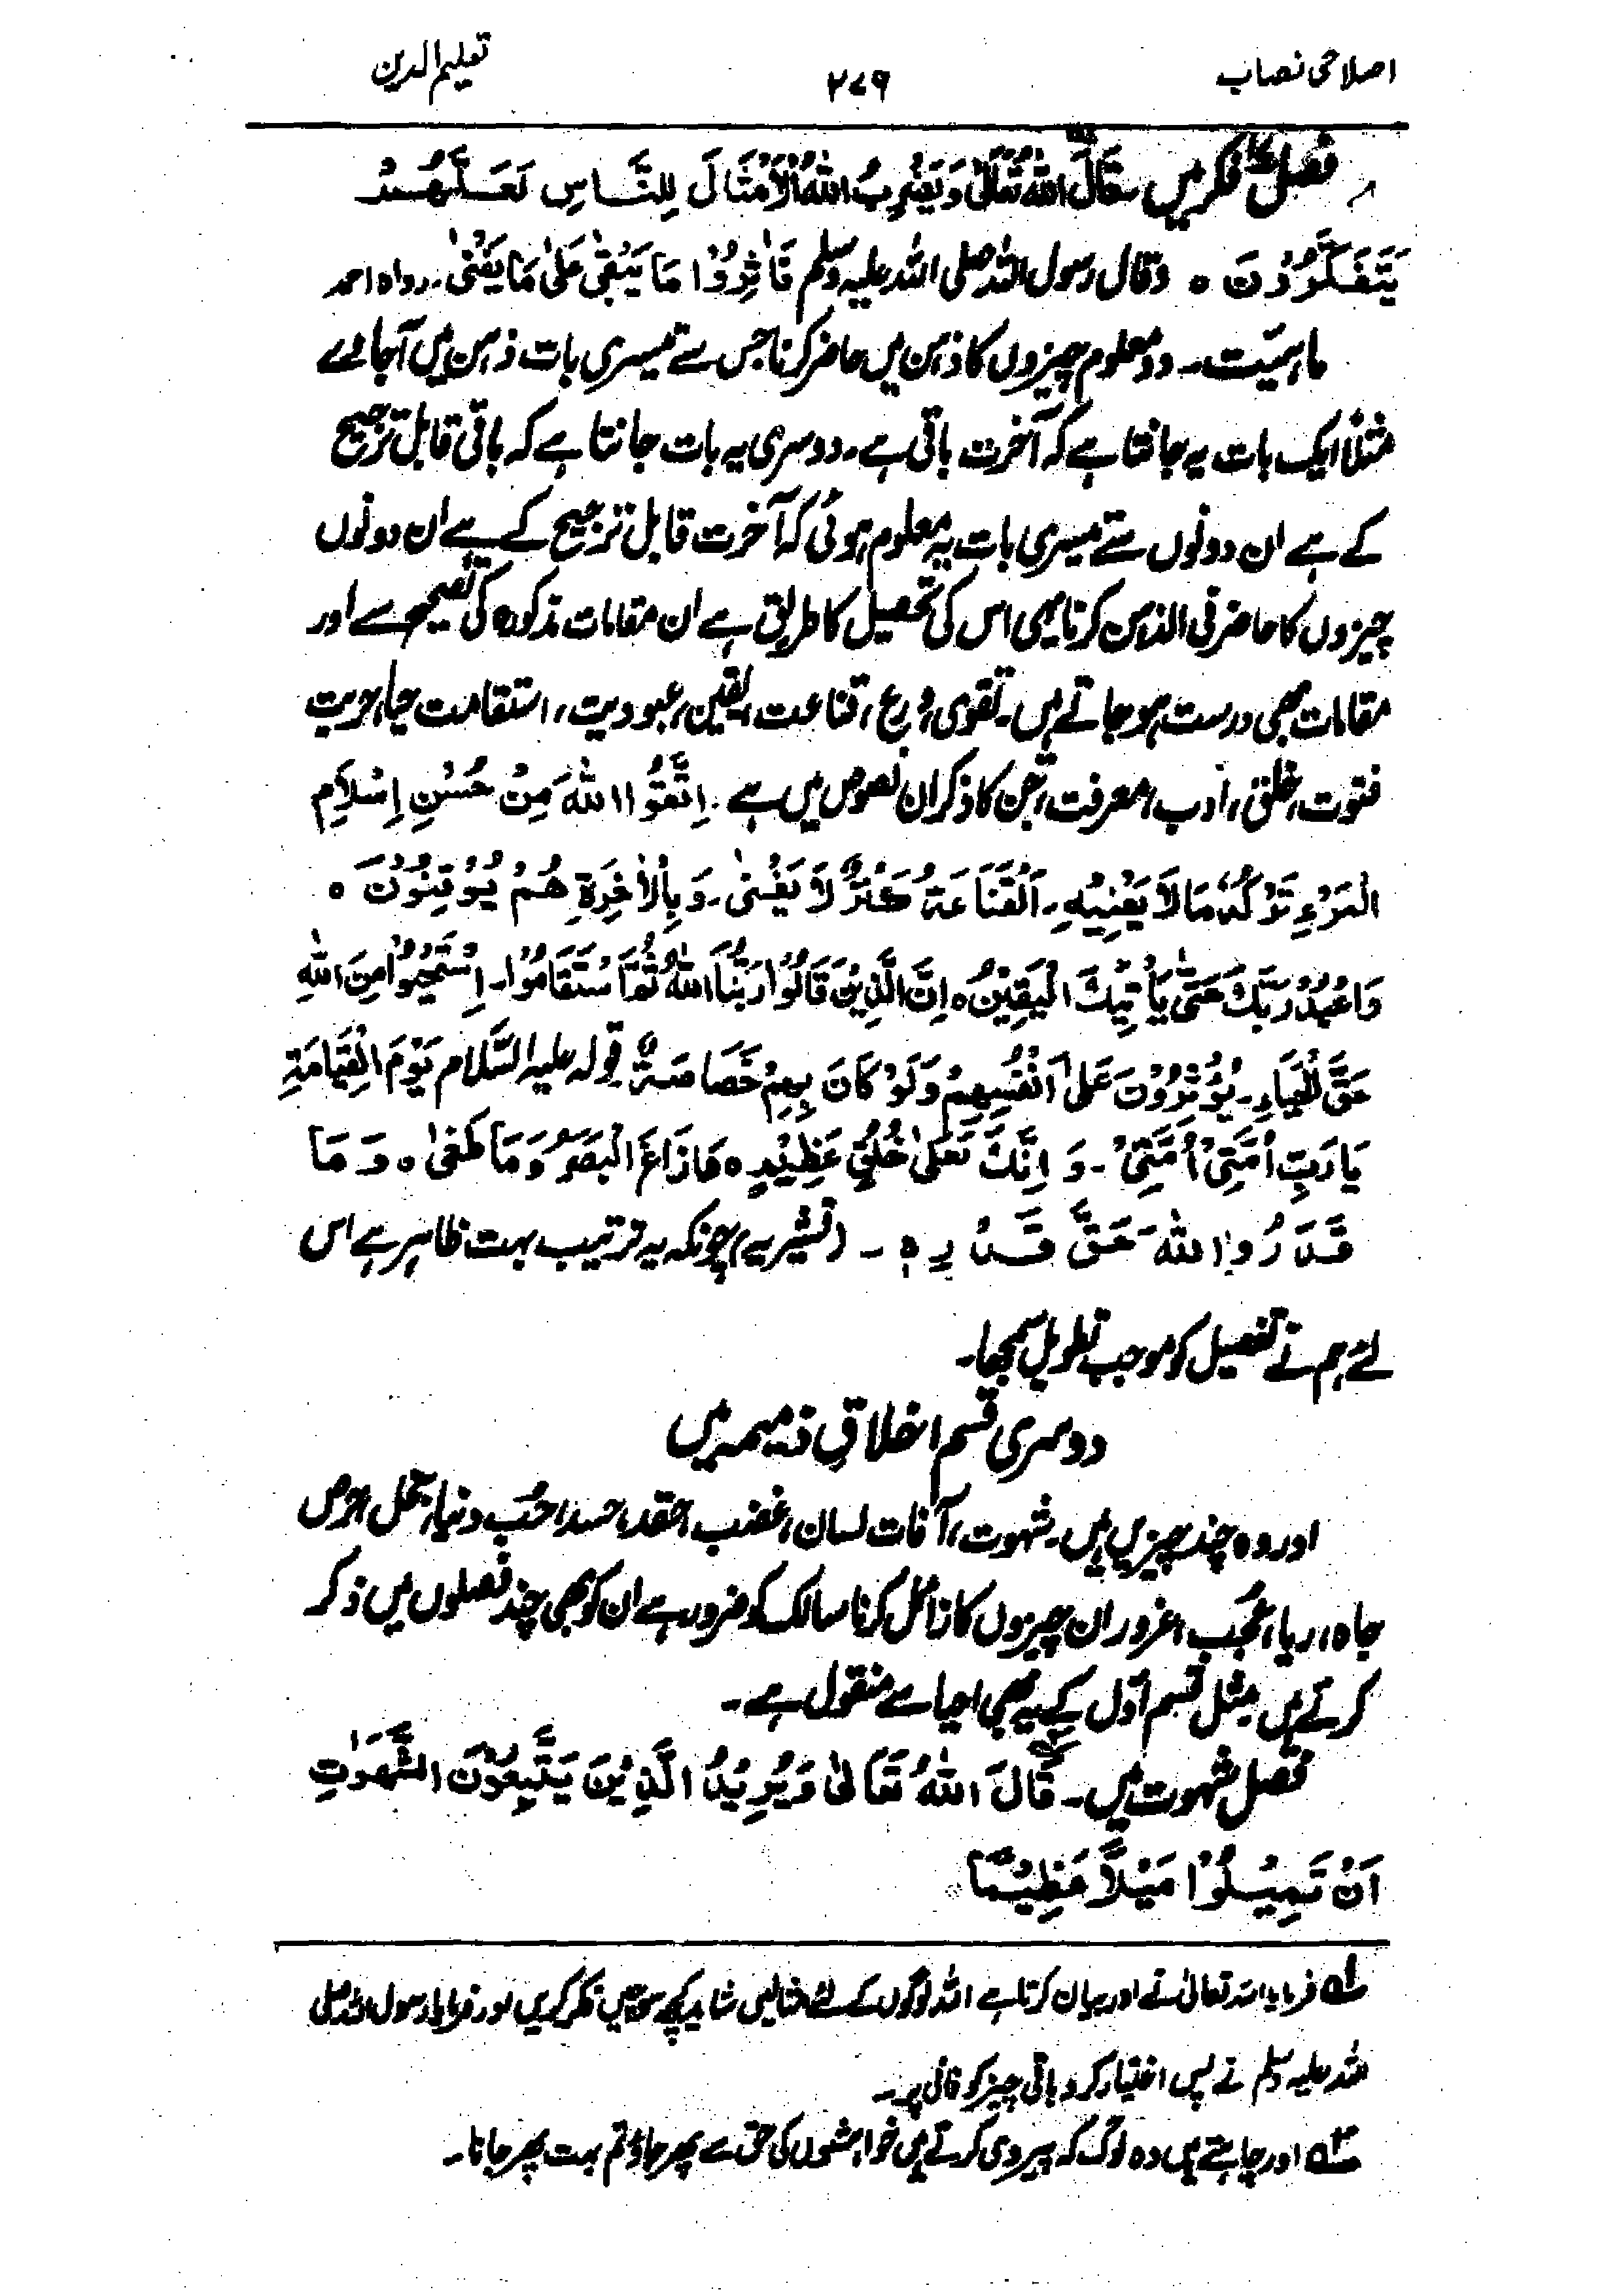 اصلاحی نصاب ۲۷۹ تعلیم الدین
فصل فکر میں ۔ قَالَ اللّٰهُ تَعَالٰی وَيَضْرِبُ اللّٰهُ الْاَمْثَالَ لِلنَّاسِ لَعَلَّهُمْ
يَتَفَكَّرُوْنَ ه وقال رسول اللہ صلی اللہ علیہ وسلم فَاٰثِرُوْا مَا يَبْقٰى عَلٰى مَا يَفْنٰى۔ رواہ احمد
ماہیّت۔ دو معلوم چیزوں کا ذہن میں حاضر کرنا جس سے تیسری بات ذہن میں آجاوے
مثلاً ایک بات یہ جانتا ہے کہ آخرت باقی ہے۔ دوسری یہ بات جانتا ہے کہ باقی قابل ترجیح
کے ہے ان دونوں سے تیسری بات یہ معلوم ہوئی کہ آخرت قابل ترجیح کے ہے ان دونوں
چیزوں کا حاضر فی الذہن کرنا یہی اس کی تحصیل کا طریق ہے ان مقامات مذکورہ کی تصحیح سے اور
مقامات بھی درست ہوجاتے ہیں۔ تقوی، ورع، قناعت، یقین، عبودیت، استقامت حیا، حریت
فتوت، خلق، ادب، معرفت، جن کا ذکر ان نصوص میں ہے۔ اِتَّقُوا اللهَ مِنْ حُسْنِ اِسْلَامِ
الْمَرْءِ تَرْكُهٗ مَا لَا يَعْنِيْهِ۔ اَلْقَنَاعَةُ كَنْزٌ لَا يَفْنٰى۔ وَبِالْاٰخِرَةِ هُمْ يُوْقِنُوْنَ ه
وَاعْبُدْ رَبَّكَ حَتّٰى يَأْتِيَكَ الْيَقِيْنُ ه اِنَّ الَّذِيْنَ قَالُوْا رَبُّنَا اللهُ ثُمَّ اسْتَقَامُوْا۔ اِسْتَحْيُوْا مِنَ اللهِ
حَقَّ الْحَيَاءِ۔ يُؤْثِرُوْنَ عَلٰى اَنْفُسِهِمْ وَلَوْ كَانَ بِهِمْ خَصَاصَةٌ قولہ علیہ السّلام يَوْمَ الْقِيَامَةِ
يَا رَبِّ اُمَّتِيْ اُمَّتِيْ۔ وَ اِنَّكَ لَعَلٰى خُلُقٍ عَظِيْمٍ ه مَا زَاغَ الْبَصَرُ وَمَا طَغٰى ه وَ مَا
قَدَرُوا اللهَ حَقَّ قَدْرِهٖ ۔ (قشیریہ) چونکہ یہ ترتیب بہت ظاہر ہے اس
لئے ہم نے تفصیل کو موجب تطویل سمجھا۔
دوسری قسم اخلاقِ ذمیمہ میں
اور وہ چند چیزیں ہیں۔ شہوت، آفات لسان، غضب، حقد، حسد، حُبّ دنیا، بخل، حرص
جاہ، ریا، عُجب، غرور ان چیزوں کا زائل کرنا سالک کو ضرور ہے ان کو بھی چند فصلوں میں ذکر
کرتے ہیں مثل قسم اوّل کے یہ بھی احیا سے منقول ہے۔
فصل شہوت میں۔ قَالَ اللهُ تَعَالٰى وَيُرِيْدُ الَّذِيْنَ يَتَّبِعُوْنَ الشَّهَوٰتِ
اَنْ تَمِيْلُوْا مَيْلًا عَظِيْمًا
۱؎ فرمایا اللہ تعالیٰ نے اور بیان کرتا ہے اللہ لوگوں کے لئے مثالیں شاید کچھ سوچیں فکر کریں اور فرمایا رسول اللہ صلی
اللہ علیہ وسلم نے پس اختیار کرو باقی چیز کو فانی پر۔
۲؎ اور چاہتے ہیں وہ لوگ کہ پیروی کرتے ہیں خواہشوں کی حق سے پھر جاؤ تم بہت پھر جانا۔